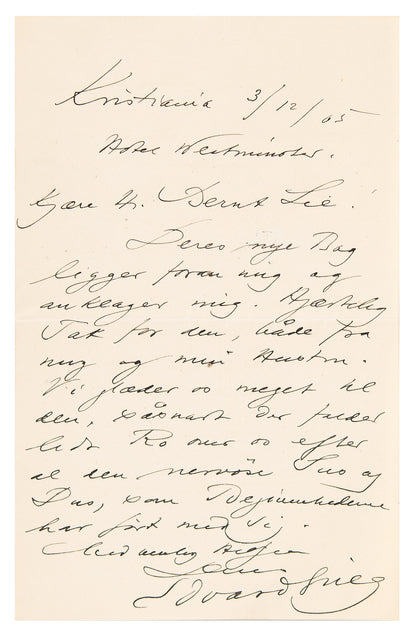 Kristiania 3/12/05
Hotel Westminster.
Kjære Hr. Bernt Lie!
Deres nye Bog
ligger foran mig og
anklager mig. Hjærtelig
Tak for den, både fra
mig og min Hustru.
Vi glæder os meget til
den, såsnart der falder
lidt Ro over os efter
al den nervöse Sus og
Dus, som Begivenhederne
har ført med sig.
Med venlig Hilsen
Deres
Edvard Grieg